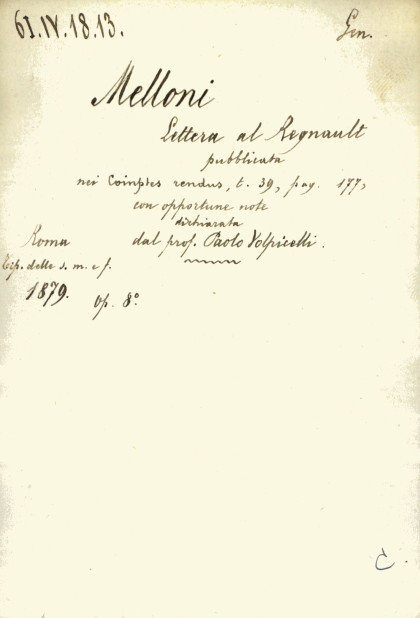 61.IV.18.13. Gen.
Melloni
Lettera al Regnault
pubblicata
nei Comptes rendus, t. 39, pag. 177,
con opportune note
dichiarata
dal prof. Paolo Volpicelli.
Roma
Tip. delle s. m. e f.
1879. op. 8°
C.